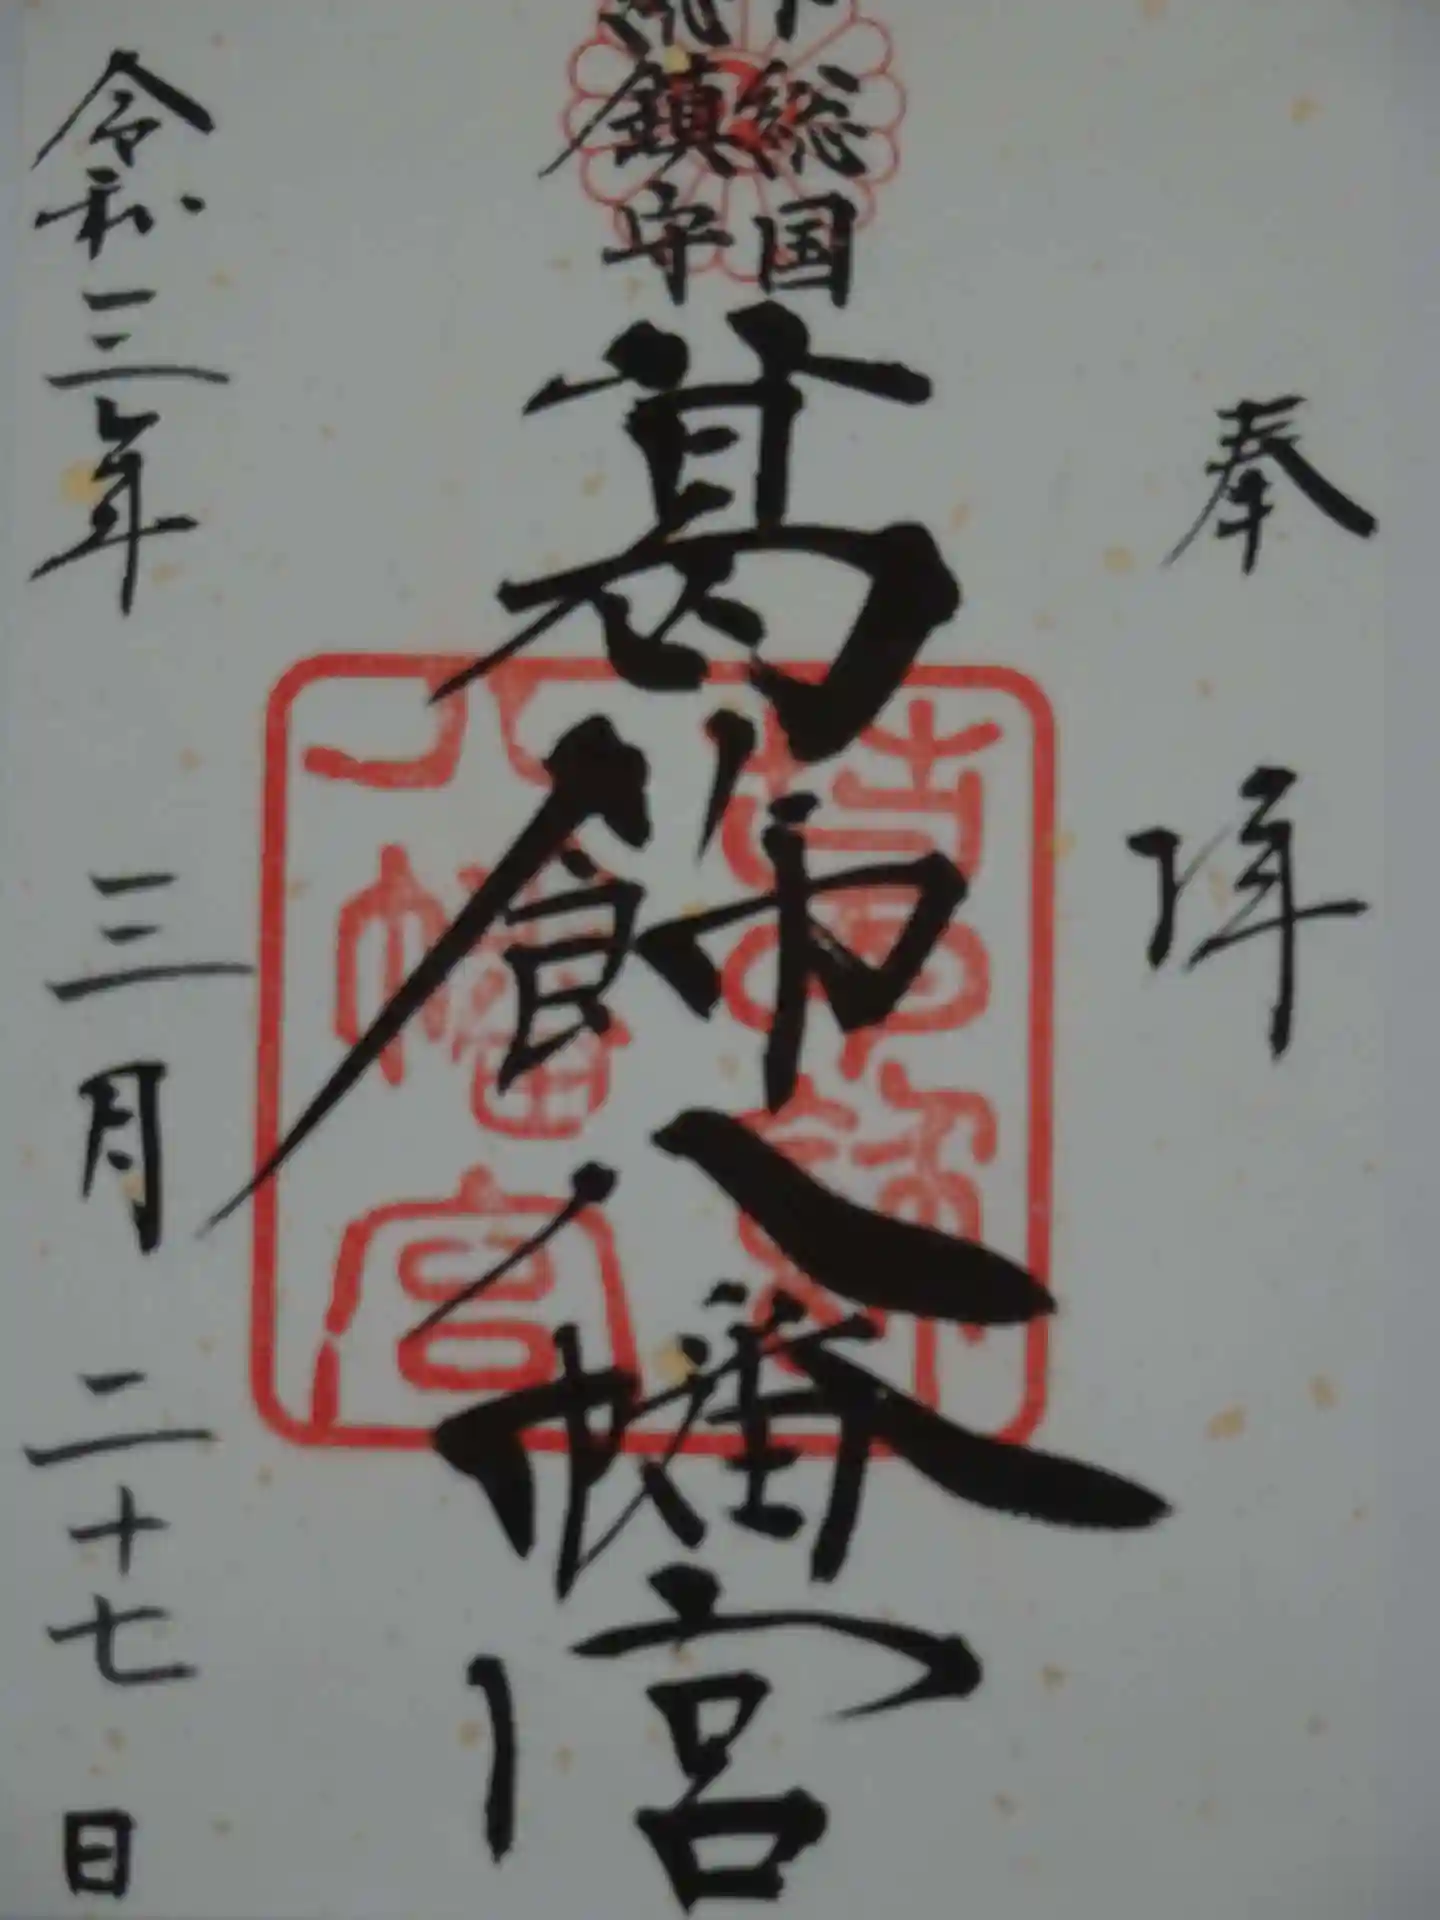 奉拝
下総国
総鎮守
葛飾八幡宮
葛飾
八幡宮
令和三年三月二十七日